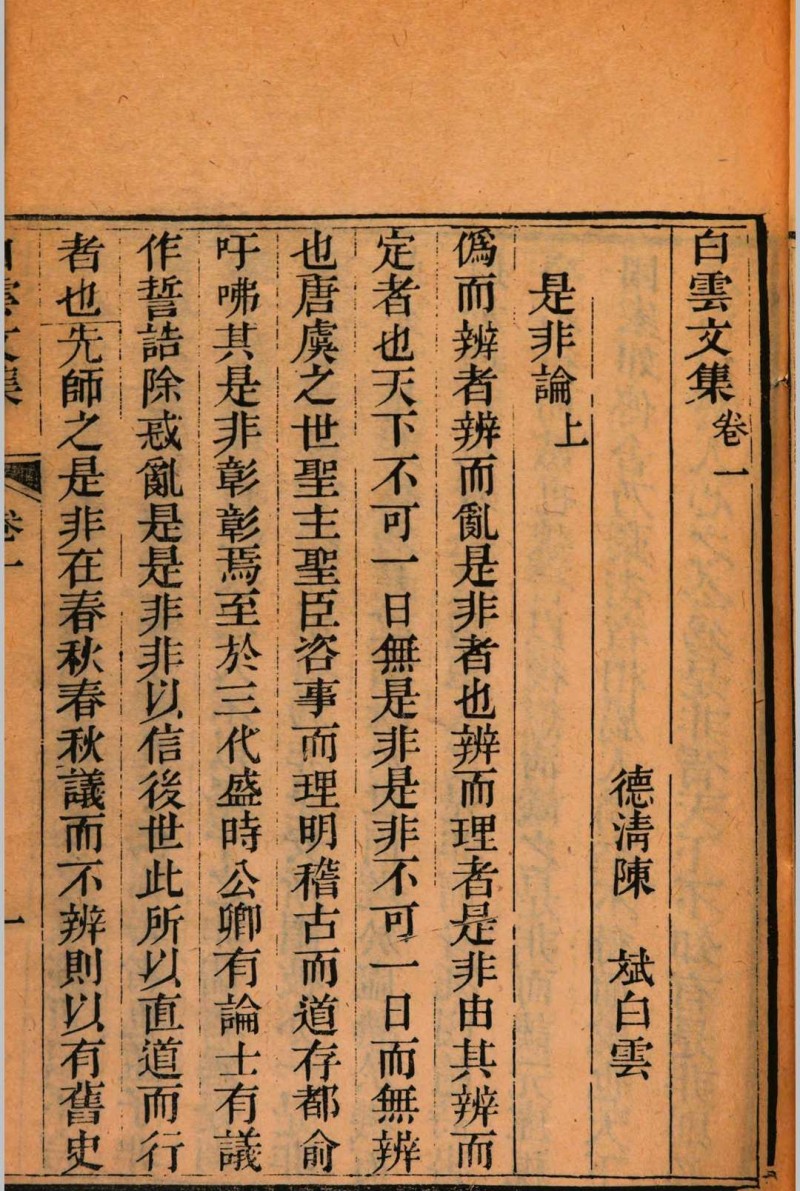 白雲文集卷一
德清陳　斌白雲
是非論上
僞而辨者辨而亂是非者也辨而理者是非由其辨而
定者也天下不可一日無是非是非不可一日而無辨
也唐虞之世聖主聖臣咨事而理明稽古而道存都俞
吁咈其是非彰彰焉至於三代盛時公卿有論士有議
作誓誥除惑亂是是非非以信後世此所以直道而行
者也先師之是非在春秋春秋議而不辨則以有舊史
白雲文集
卷一
一